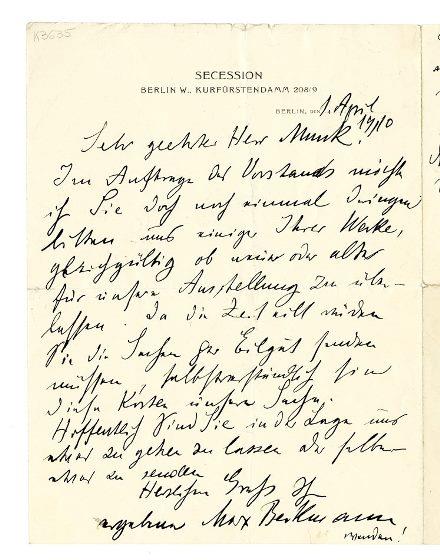 K3635
SECESSION
BERLIN W., KURFÜRSTENDAMM 208/9
BERLIN, DEN 1. April
1910
Sehr geehrter Herr Munk!
Im Auftrage des Vorstands möcht
ich Sie doch noch einmal dringend
bitten uns einige Ihrer Werke,
gleichgültig ob neuer oder alter
für unsere Ausstellung zu über-
lassen. Da die Zeit eilt würden
Sie die Sachen per Eilgut senden
müssen, selbstverständlich sind
diese Kosten unsere Sache.
Hoffentlich sind Sie in der Lage uns
etwas zugehen zu lassen oder selber
etwas zu senden
Herzlichen Gruß Ihr
ergebener Max Beckmann
wenden!